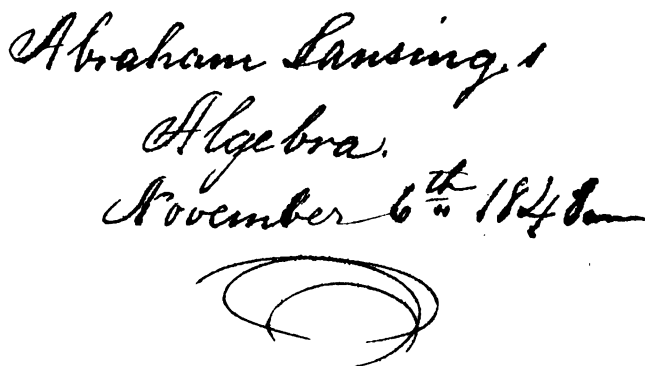 Abraham Lansing's
Algebra.
November 6th 1848